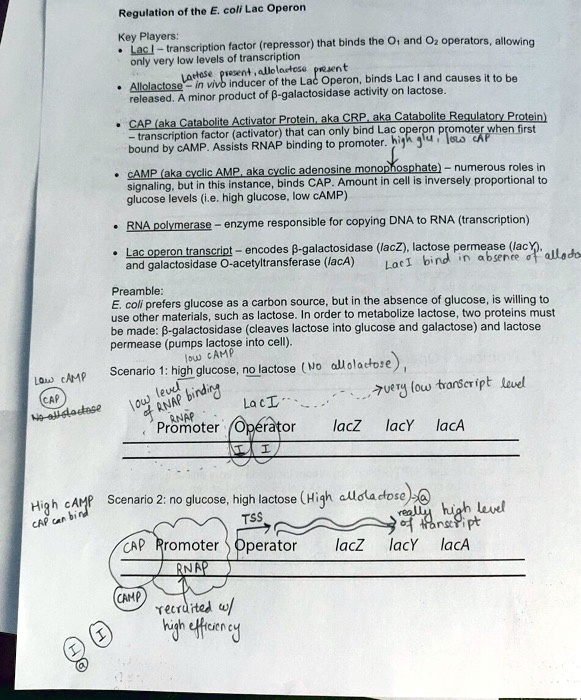 Regulation of the E. coli Lac Operon
Key Players:
• Lac I – transcription factor (repressor) that binds the O₁ and O₂ operators, allowing
only very low levels of transcription
Lactose present, allolactose present
• Allolactose – in vivo inducer of the Lac Operon, binds Lac I and causes it to be
released. A minor product of β-galactosidase activity on lactose.
• CAP (aka Catabolite Activator Protein, aka CRP, aka Catabolite Regulatory Protein)
– transcription factor (activator) that can only bind Lac operon promoter when first
bound by cAMP. Assists RNAP binding to promoter. high glu, low CAP
• cAMP (aka cyclic AMP, aka cyclic adenosine monophosphate) – numerous roles in
signaling, but in this instance, binds CAP. Amount in cell is inversely proportional to
glucose levels (i.e. high glucose, low cAMP)
• RNA polymerase – enzyme responsible for copying DNA to RNA (transcription)
• Lac operon transcript – encodes β-galactosidase (lacZ), lactose permease (lacY),
and galactosidase O-acetyltransferase (lacA)
LacI bind in absence of allo
Preamble:
E. coli prefers glucose as a carbon source, but in the absence of glucose, is willing to
use other materials, such as lactose. In order to metabolize lactose, two proteins must
be made: β-galactosidase (cleaves lactose into glucose and galactose) and lactose
permease (pumps lactose into cell).
low cAMP
Scenario 1: high glucose, no lactose (No allolactose),
Low cAMP
CAP
No allolactose
low level
of RNAP binding
RNAP
LacI
very low transcript level
Promoter Operator lacZ lacY lacA
I I
Scenario 2: no glucose, high lactose (High allolactose) a
High cAMP
CAP can bind
TSS
really high level
of transcript
CAP Promoter Operator lacZ lacY lacA
RNAP
CAMP
recruited w/
high efficiency
I I
a